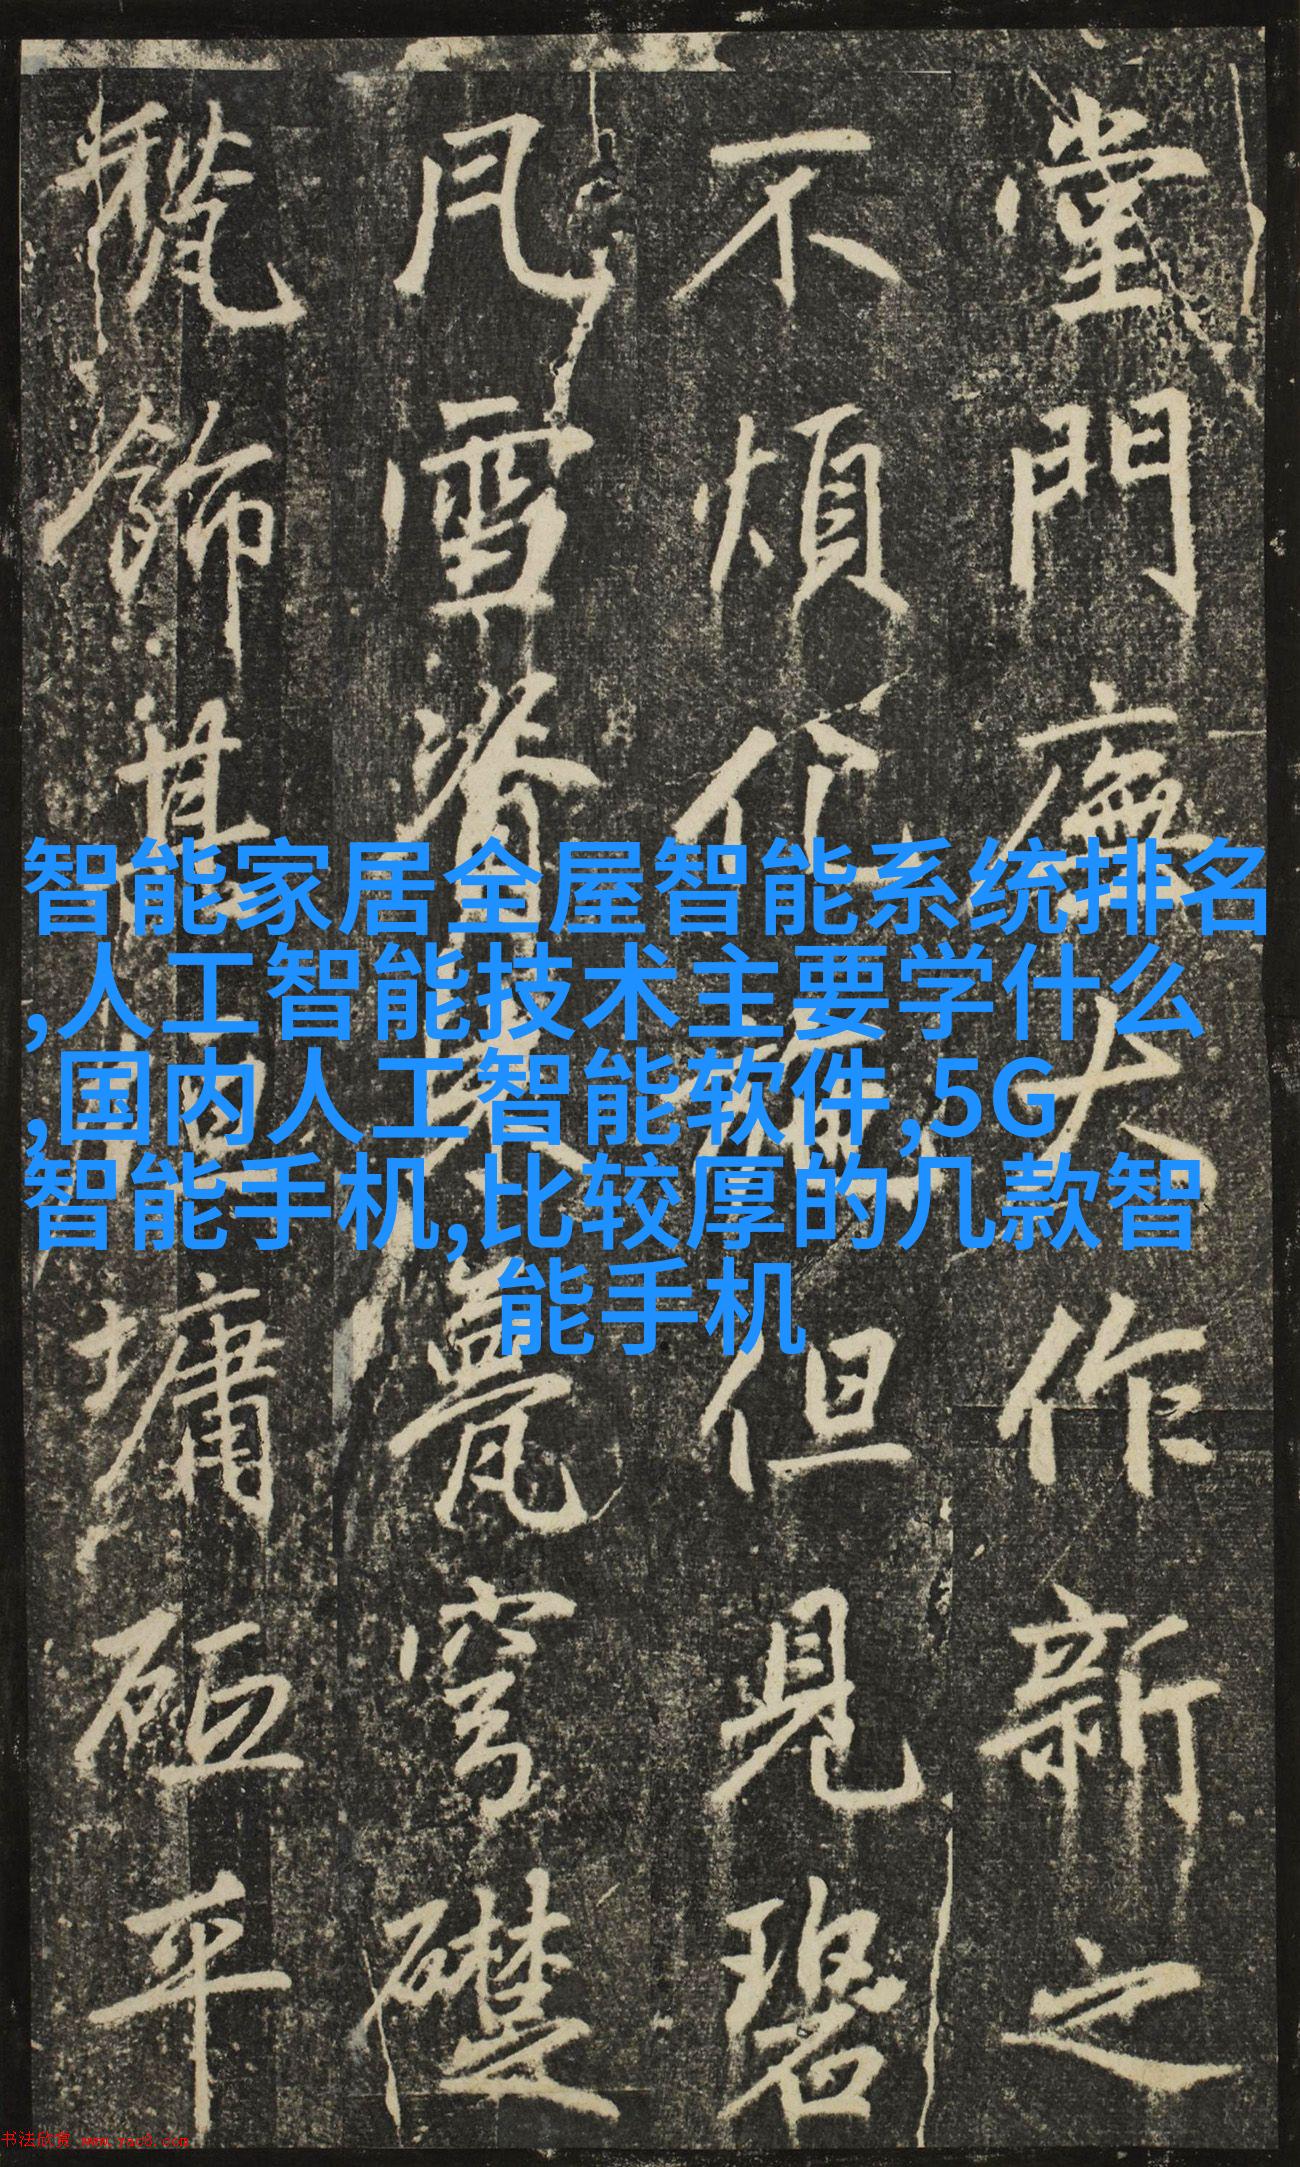 堂門廡大作新之
不煩化但見碧
雪脊甍穹礎
飾其墉砠平
智能家居全屋智能系统排名
,人工智能技术主要学什么
,国内人工智能软件,5G
智能手机,比较厚的几款智
能手机
书法欣赏 www.yac8.com